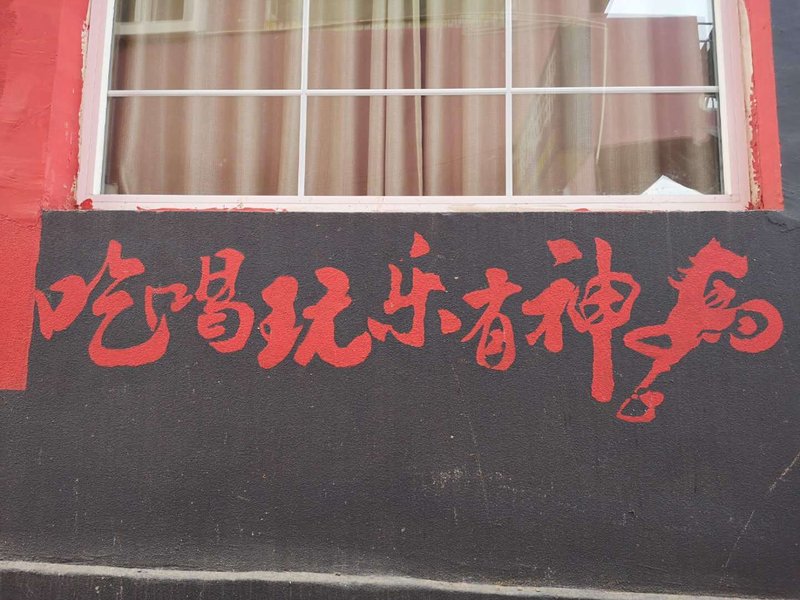 吃喝玩乐有神马